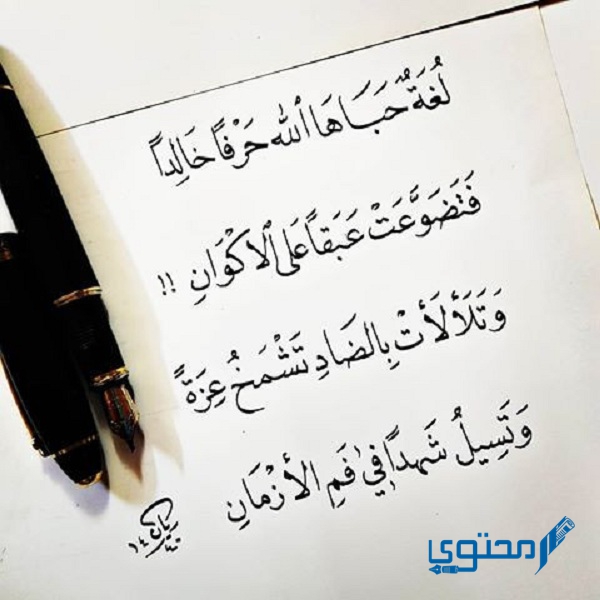 لُغَةٌ حَبَاهَا ٱللهُ حَرْفاً خَالِداً
فَتَضَوَّعَتْ عَبَقاً عَلى الأَكْوَانِ !!
وَتَلَأْلَأَتْ بِالضَادِ تَشْمَخُ عِزَةً
وَتَسِيلُ شَهداً في فَمِ الأَزْمَانِ
محتوي